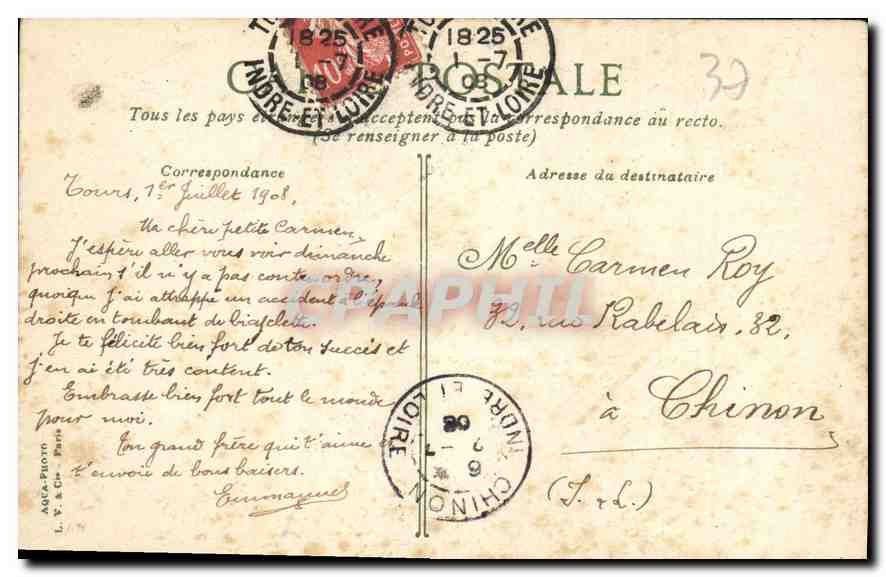 TOURS GARE
18 25
1 -7
08
INDRE-ET-LOIRE
10
POSTES
TOURS GARE
18 25
1 -7
08
INDRE-ET-LOIRE
37
CARTE POSTALE
Tous les pays étrangers n'acceptent pas la correspondance au recto.
(Se renseigner à la poste)
Correspondance
Tours, 1er Juillet 1908,
Ma chère petite Carmen,
J'espère aller vous voir dimanche
prochain s'il n'y a pas contre ordre,
quoique j'ai attrappé un accident à l'épaule
droite en tombant de biciclette.
Je te félicite bien fort de ton succès et
j'en ai été très content.
Embrasse bien fort tout le monde
pour moi.
Ton grand frère qui t'aime et
t'envoie de bons baisers.
Emmanuel
Adresse du destinataire
Melle Carmen Roy
32, rue Rabelais, 32,
à Chinon
(I. & L.)
CHINON
INDRE ET LOIRE
6
2 - 7
08
CPAPHIL
AQUA-PHOTO
L. V. & Cie - Paris